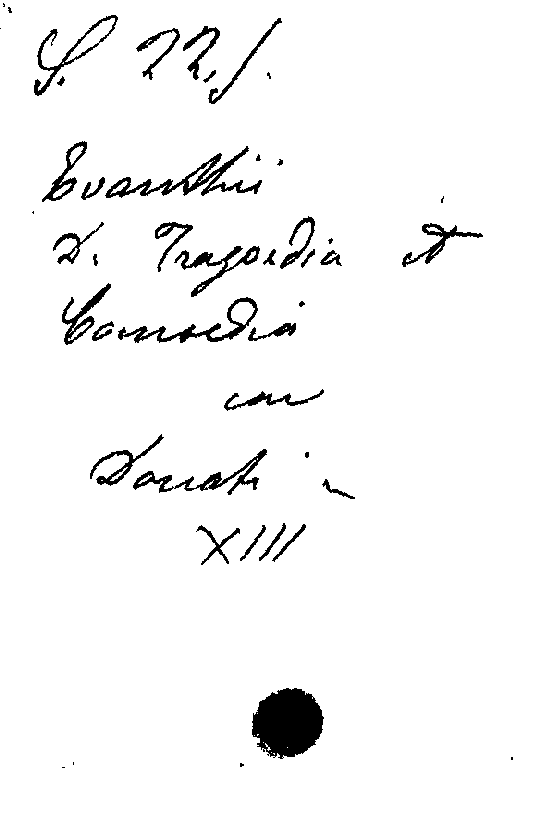 S. 22.f.
Evanthii
D. Tragoedia et
Comoedia
cu
Donati in
XIII